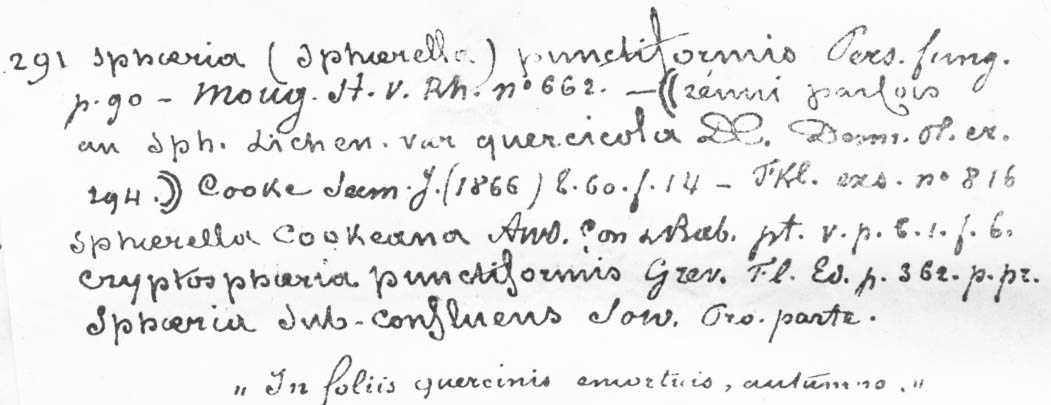 291 Sphæria (Sphærella) punctiformis Pers. fung.
p. 90 - Moug. St. V. Rh. nº 662. - ((réuni parfois
au Sph. Lichen. var quercicola DC. Desm. ol. cr.
294.)) Cooke Seem. J. (1866) t. 60. f. 14 - Fkl. exs. nº 816
Sphærella Cookeana Awd. Gon & Rab. pt. v. p. t. 1. f. 6.
Cryptosphæria punctiformis Grev. Fl. Ed. p. 362. p. pr.
Sphæria Sub-confluens Sow. Pro. parte.
„ In foliis quercinis emortuis, autumno. "